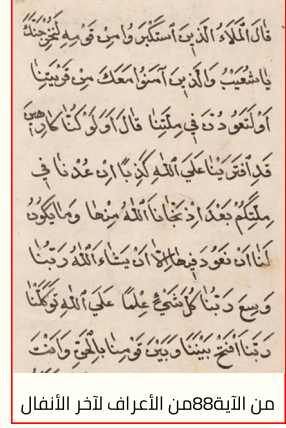 قَالَ ٱلْمَلَأُ ٱلَّذِينَ ٱسْتَكْبَرُوا مِن قَوْمِهِ لَنُخْرِجَنَّكَ
يَا شُعَيْبُ وَٱلَّذِينَ آمَنُوا مَعَكَ مِن قَرْيَتِنَا
أَوْ لَتَعُودُنَّ فِي مِلَّتِنَا قَالَ أَوَلَوْ كُنَّا كَارِهِينَ
قَدِ ٱفْتَرَيْنَا عَلَى ٱللَّهِ كَذِبًا إِنْ عُدْنَا فِي
مِلَّتِكُمْ بَعْدَ إِذْ نَجَّانَا ٱللَّهُ مِنْهَا وَمَا يَكُونُ
لَنَا أَن نَعُودَ فِيهَا إِلَّا أَنْ يَشَاءَ ٱللَّهُ رَبُّنَا
وَسِعَ رَبُّنَا كُلَّ شَيْءٍ عِلْمًا عَلَى ٱللَّهِ تَوَكَّلْنَا
رَبَّنَا ٱفْتَحْ بَيْنَنَا وَبَيْنَ قَوْمِنَا بِالْحَقِّ وَأَنْتَ
من الآية88من الأعراف لآخر الأنفال